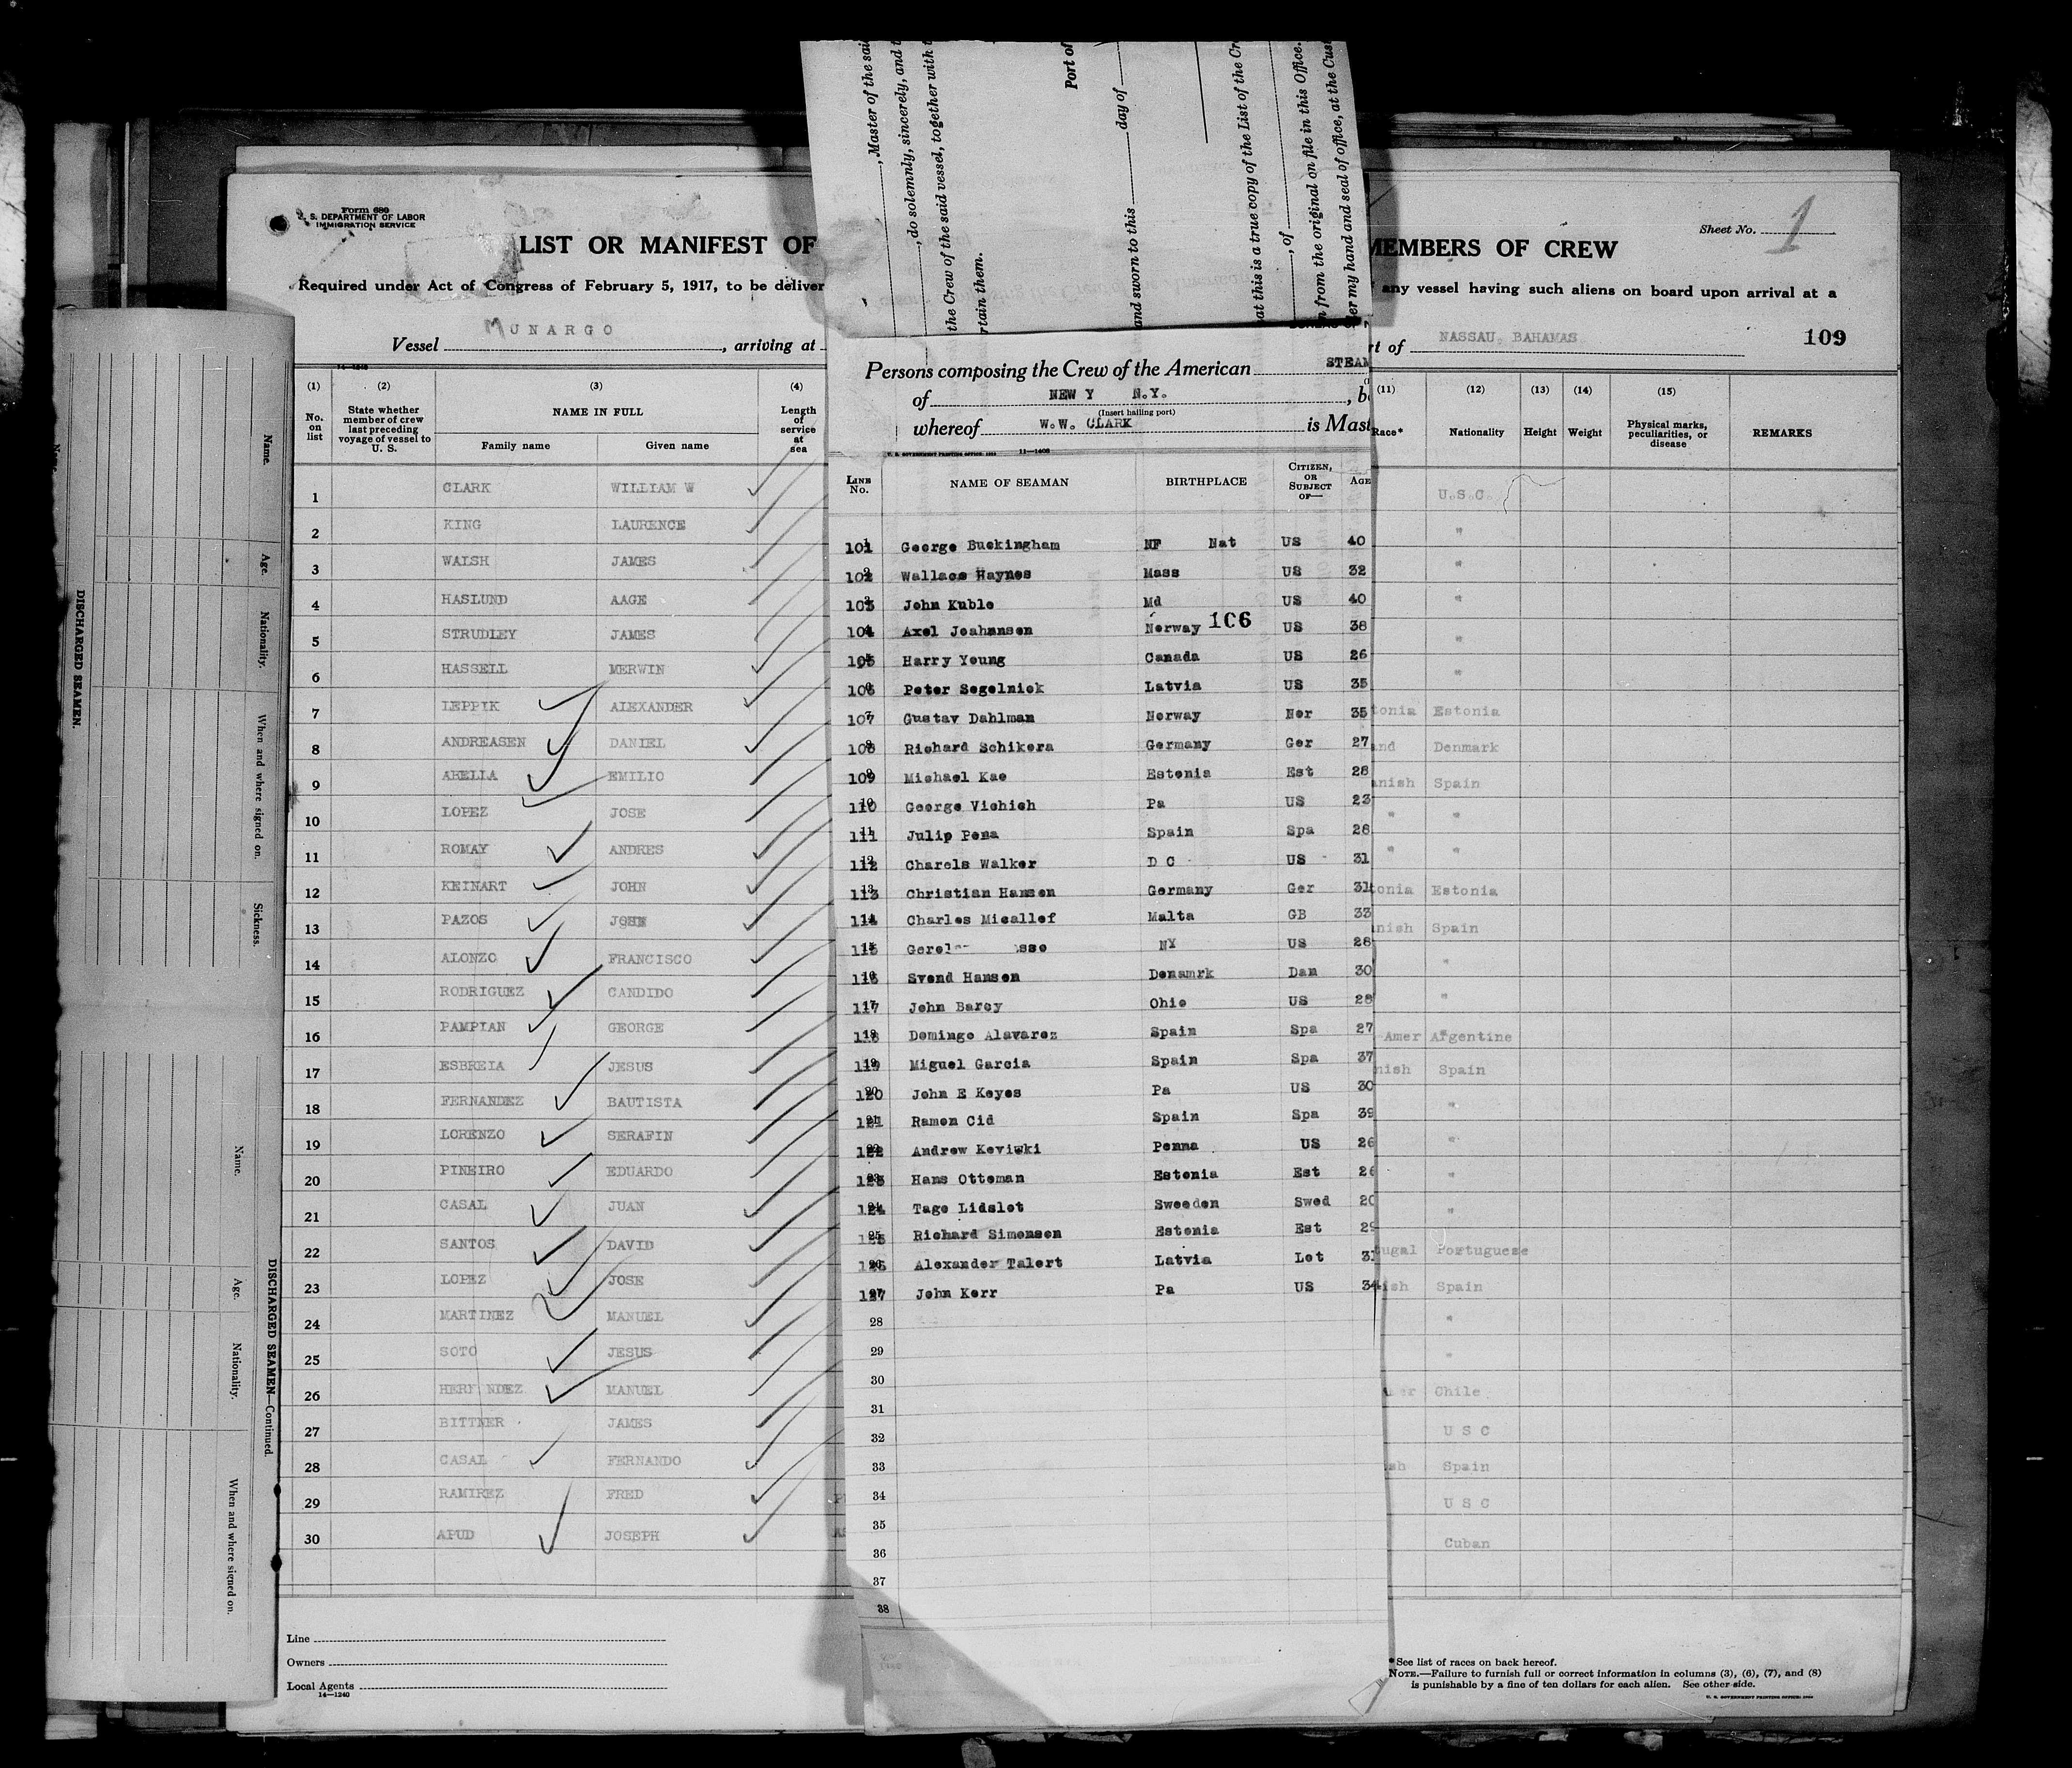 Form 680
U. S. DEPARTMENT OF LABOR
IMMIGRATION SERVICE
LIST OR MANIFEST OF
MEMBERS OF CREW
Sheet No. 1
Required under Act of Congress of February 5, 1917, to be deliver
any vessel having such aliens on board upon arrival at a
Vessel MUNARGO, arriving at
rt of NASSAU, BAHAMAS
109
14—1240
(1) (2) (3) (4)
No. on list
State whether member of crew last preceding voyage of vessel to U. S.
NAME IN FULL
Family name Given name
Length of service at sea
1 CLARK WILLIAM W
2 KING LAURENCE
3 WALSH JAMES
4 HASLUND AAGE
5 STRUDLEY JAMES
6 HASSELL MERWIN
7 LEPPIK ALEXANDER
8 ANDREASEN DANIEL
9 ABELLA EMILIO
10 LOPEZ JOSE
11 ROMAY ANDRES
12 KEINART JOHN
13 PAZOS JOHN
14 ALONZO FRANCISCO
15 RODRIGUEZ CANDIDO
16 PAMPIAN GEORGE
17 ESBREIA JESUS
18 FERNANDEZ BAUTISTA
19 LORENZO SERAFIN
20 PINEIRO EDUARDO
21 CASAL JUAN
22 SANTOS DAVID
23 LOPEZ JOSE
24 MARTINEZ MANUEL
25 SOTO JESUS
26 HERNANDEZ MANUEL
27 BITTNER JAMES
28 CASAL FERNANDO
29 RAMIREZ FRED
30 APUD JOSEPH
Line
Owners
Local Agents
14—1240
, Master of the said
, do solemnly, sincerely, and t
the Crew of the said vessel, together with t
rtain them.
Port of
and sworn to this day of
at this is a true copy of the List of the Cr
, of
n from the original on file in this Office.
der my hand and seal of office, at the Cust
Persons composing the Crew of the American STEAM
of NEW Y N.Y.
(Insert hailing port)
whereof W.W. CLARK is Mast
U. S. GOVERNMENT PRINTING OFFICE 11—1408
LINE No. NAME OF SEAMAN BIRTHPLACE CITIZEN, OR SUBJECT OF— AGE
101 George Buckingham NF Nat US 40
102 Wallace Haynes Mass US 32
103 John Kuble Md US 40
106
104 Axel Joahnsen Norway US 38
105 Harry Young Canada US 26
106 Peter Segelnick Latvia US 35
107 Gustav Dahlman Norway Nor 35
108 Richard Schikora Germany Ger 27
109 Michael Kae Estonia Est 28
110 George Vichich Pa US 23
111 Julip Pena Spain Spa 28
112 Charels Walker D C US 31
113 Christian Hansen Germany Ger 31
114 Charles Micallef Malta GB 33
115 NY US 28
116 Svend Hansen Denamrk Dan 30
117 John Barcy Ohio US 28
118 Domingo Alavarez Spain Spa 27
119 Miguel Garcia Spain Spa 37
120 John E Keyes Pa US 30
121 Ramon Cid Spain Spa 39
122 Andrew Keviwki Penna US 26
123 Hans Otteman Estonia Est 26
124 Tage Lidslot Sweeden Swed 20
125 Richard Simonsen Estonia Est 29
126 Alexander Talert Latvia Let 31
127 John Kerr Pa US 34
28
29
30
31
32
33
34
35
36
37
38
(11) (12) (13) (14) (15)
Race* Nationality Height Weight Physical marks, peculiarities, or disease REMARKS
U.S.C.
"
"
"
"
"
tonia Estonia
and Denmark
anish Spain
" "
" "
tonia Estonia
nish Spain
"
"
Amer Argentine
nish Spain
"
"
"
"
tugal Portuguese
ish Spain
"
"
er Chile
U S C
sh Spain
U S C
Cuban
*See list of races on back hereof.
NOTE.—Failure to furnish full or correct information in columns (3), (6), (7), and (8)
is punishable by a fine of ten dollars for each alien. See other side.
U. S. GOVERNMENT PRINTING OFFICE
DISCHARGED SEAMEN.
Name. Age. Nationality. When and where signed on. Sickness.
DISCHARGED SEAMEN—Continued.
Name. Age. Nationality. When and where signed on.